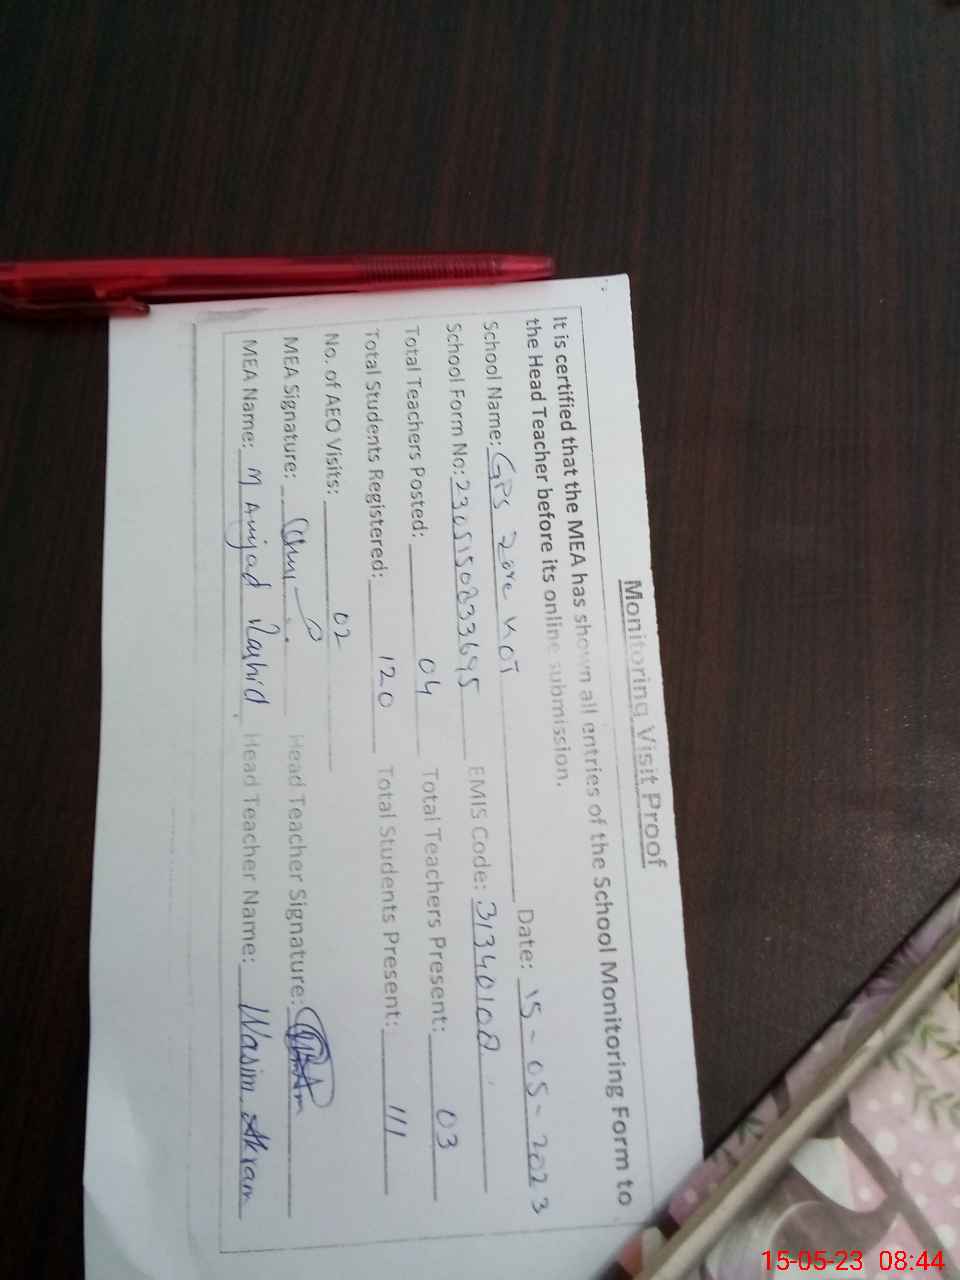 Monitoring Visit Proof
It is certified that the MEA has shown all entries of the School Monitoring Form to
the Head Teacher before its online submission.
School Name: GPS Zore Kot Date: 15-05-2023
School Form No: EMIS Code: 31340108
Total Teachers Posted: 04 Total Teachers Present: 03
Total Students Registered: 120 Total Students Present: 111
No. of AEO Visits: 02
MEA Signature: Head Teacher Signature:
MEA Name: M Amjad Rashid Head Teacher Name: Wasim Akram
15-05-23 08:44